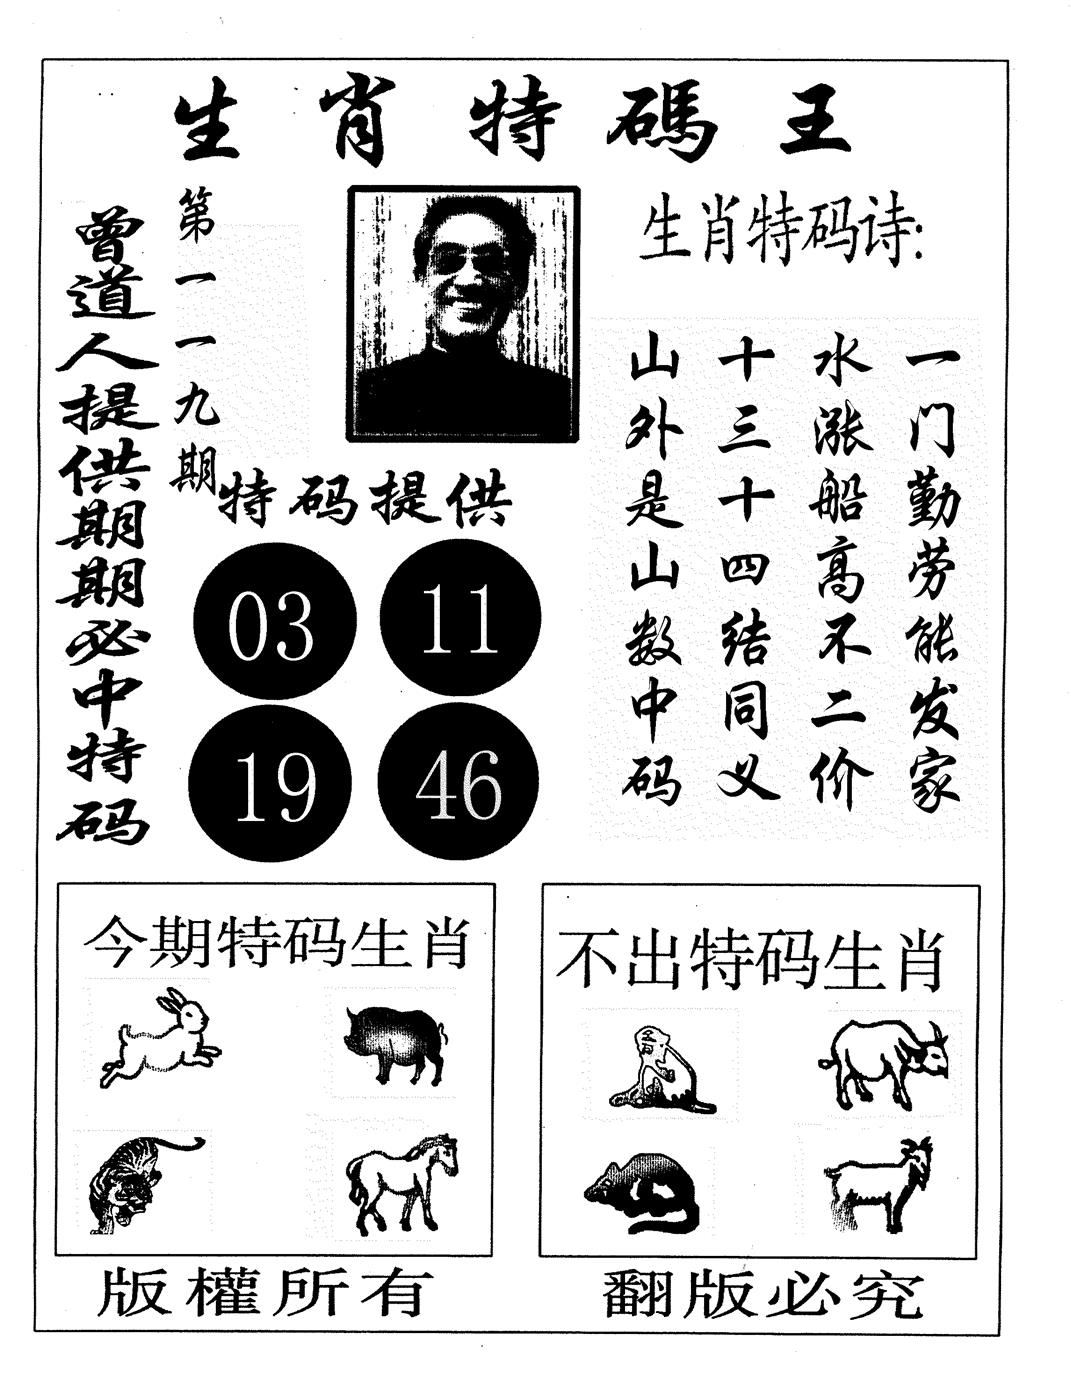 生肖特碼王
曾道人提供期期必中特码
第一一九期
生肖特码诗:
一门勤劳能发家
水涨船高不二价
十三十四结同义
山外是山数中码
特码提供
03 11
19 46
今期特码生肖
不出特码生肖
版權所有
翻版必究